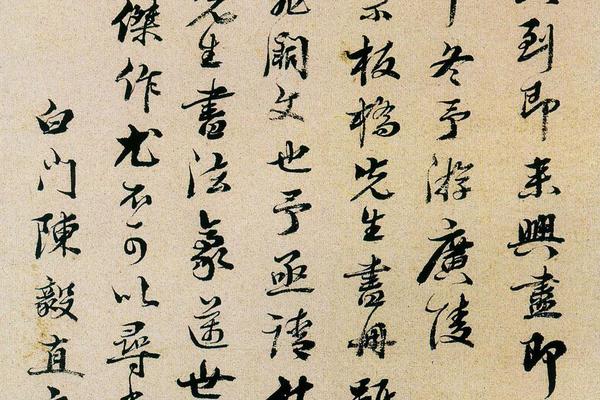 到即来興盡即
冬予游廣陵
板橋先生書冊
闕文也予亟請
先生書法豪邁世
傑作尤不可以尋
白門陳毅直